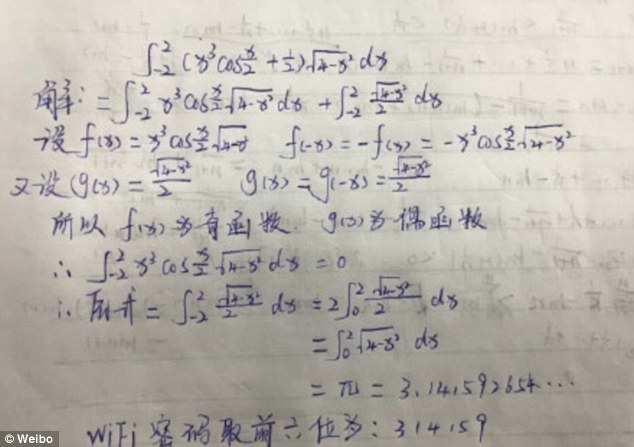 ∫₋₂² (x³cos x/2 + 1/2)√4-x² dx
解: = ∫₋₂² x³cos x/2 √4-x² dx + ∫₋₂² √4-x²/2 dx
设 f(x) = x³cos x/2 √4-x² f(-x) = -f(x) = -x³cos x/2 √4-x²
又设 g(x) = √4-x²/2 g(x) = g(-x) = √4-x²/2
所以 f(x) 为奇函数. g(x) 为偶函数
∴ ∫₋₂² x³cos x/2 √4-x² dx = 0
∴ 原式 = ∫₋₂² √4-x²/2 dx = 2∫₀² √4-x²/2 dx
= ∫₀² √4-x² dx
= π = 3.141592654...
WiFi 密码取前六位为: 314159
© Weibo